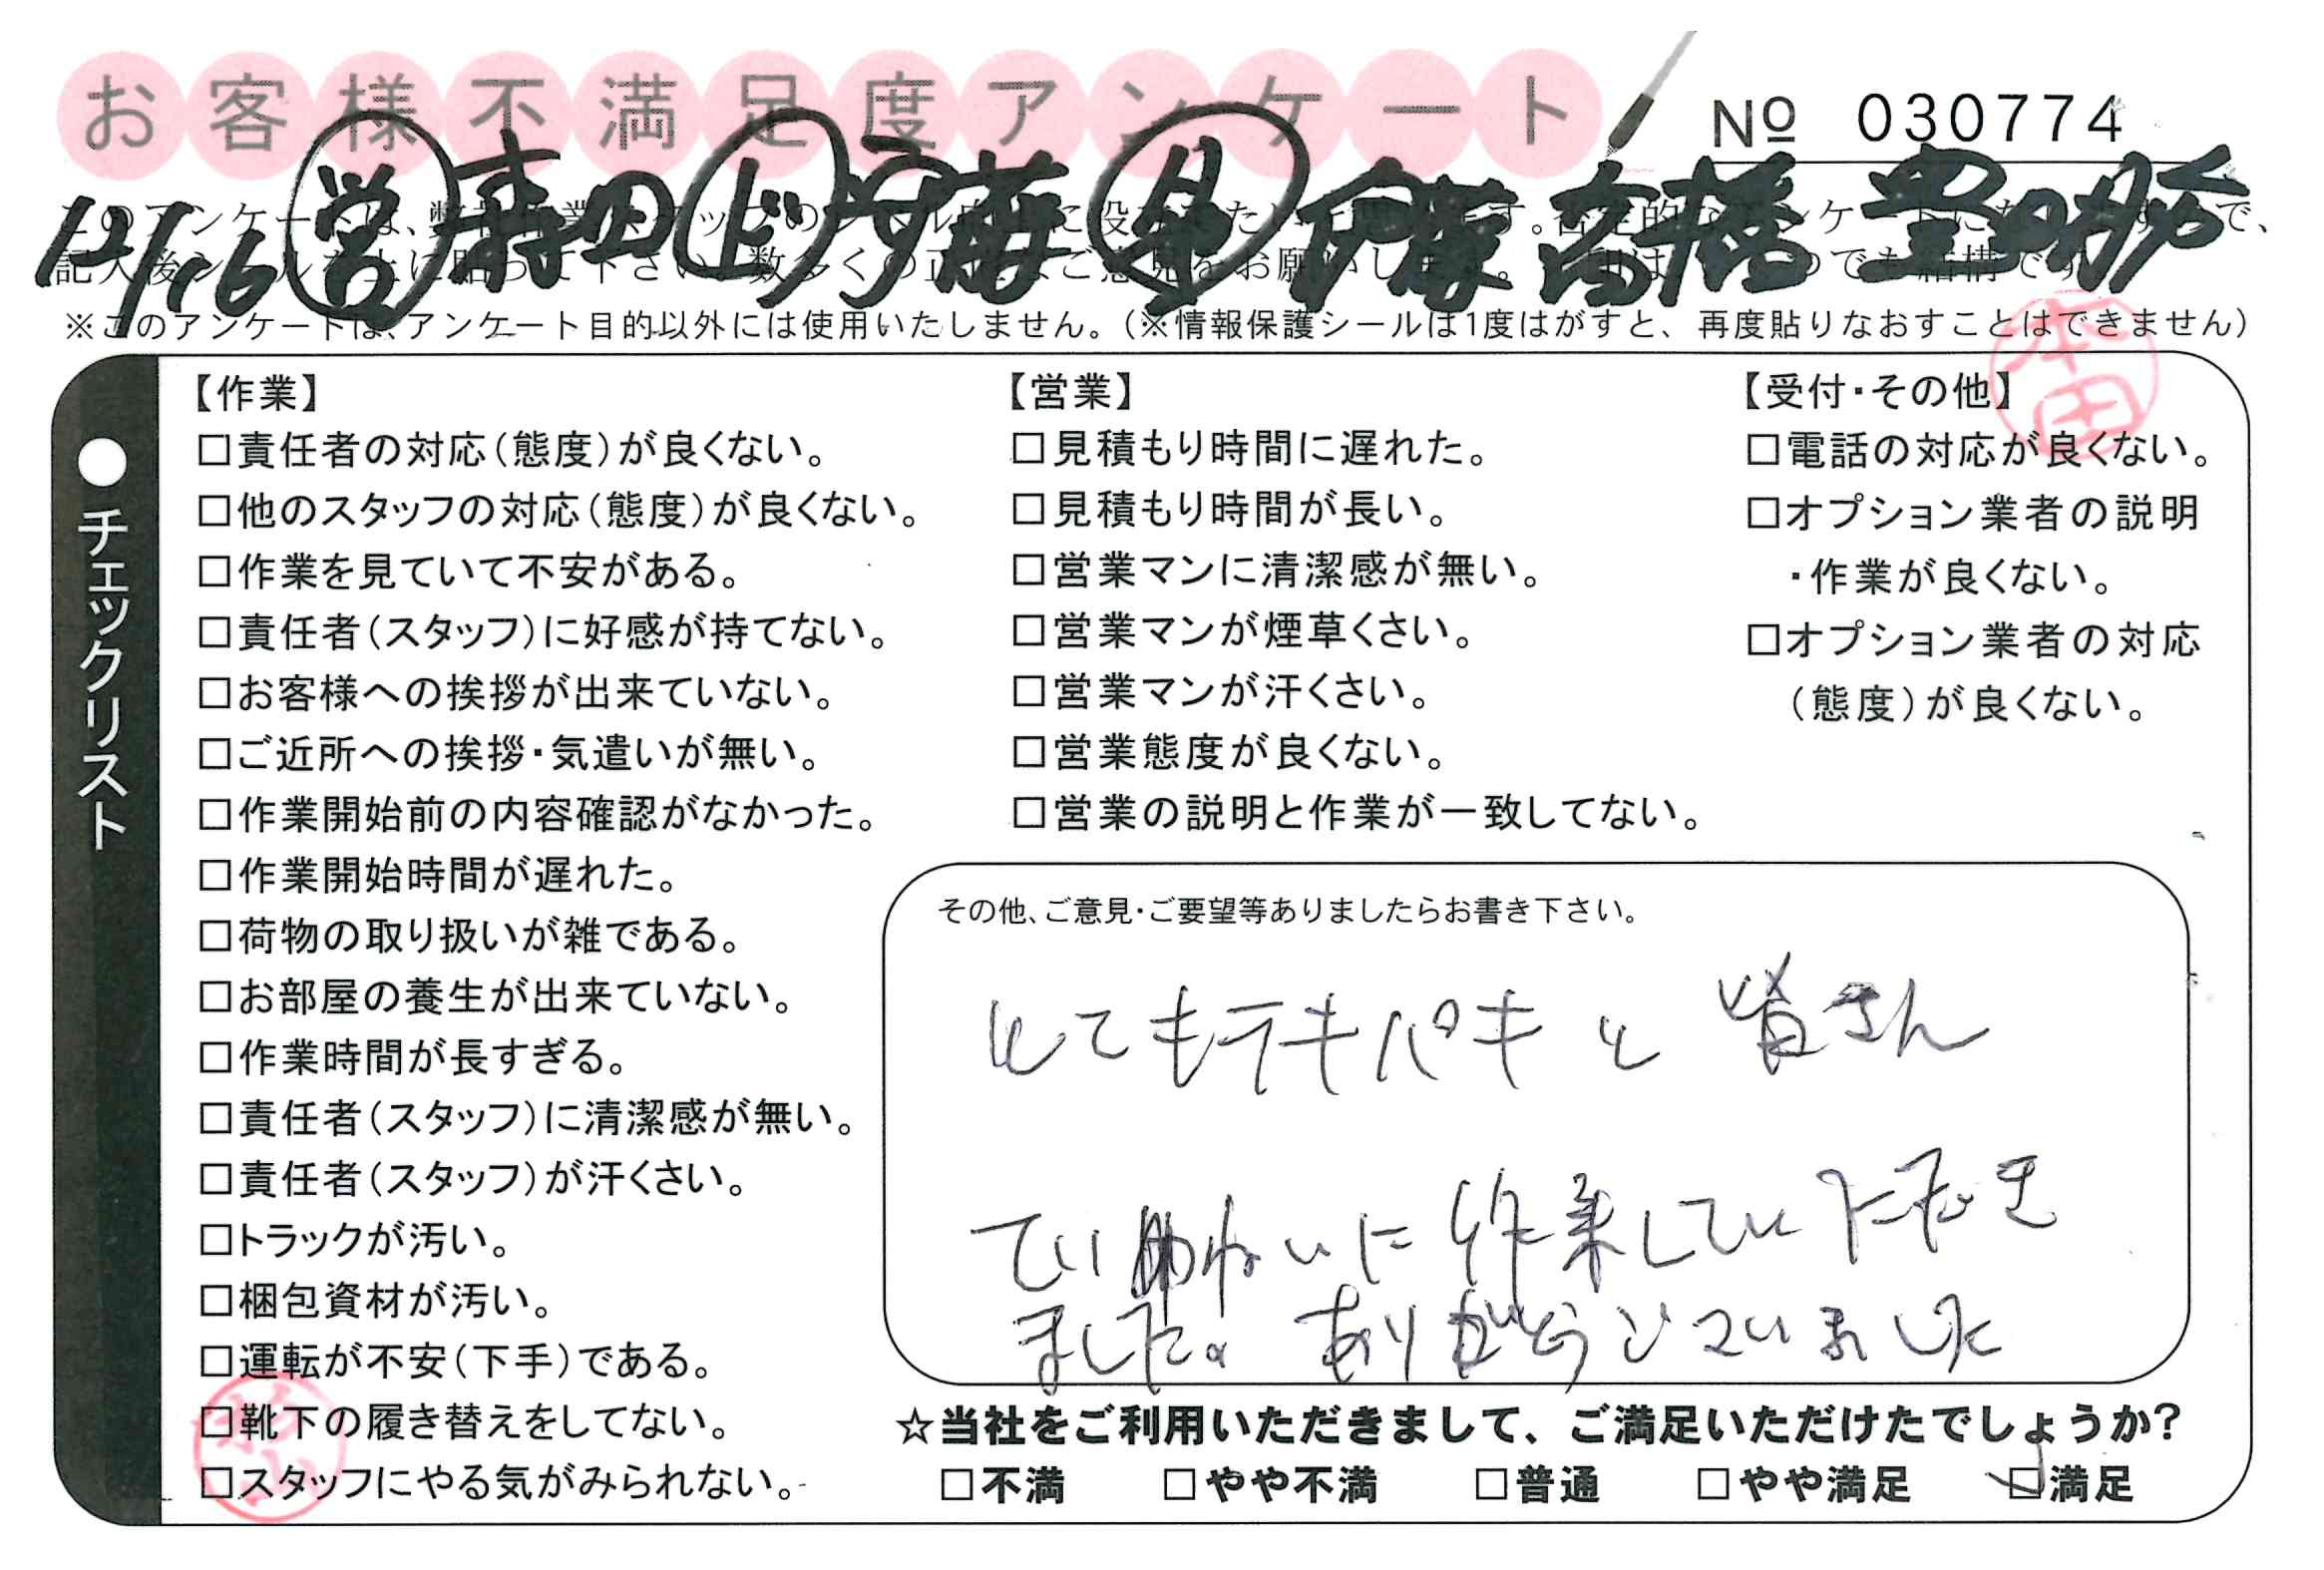 お客様不満足度アンケート
№ 030774
12/16 営 森田 ド 斉藤 助 伊藤 高橋
※このアンケートは、アンケート目的以外には使用いたしません。（※情報保護シールは1度はがすと、再度貼りなおすことはできません）
本田
●チェックリスト
【作業】
□責任者の対応（態度）が良くない。
□他のスタッフの対応（態度）が良くない。
□作業を見ていて不安がある。
□責任者（スタッフ）に好感が持てない。
□お客様への挨拶が出来ていない。
□ご近所への挨拶・気遣いが無い。
□作業開始前の内容確認がなかった。
□作業開始時間が遅れた。
□荷物の取り扱いが雑である。
□お部屋の養生が出来ていない。
□作業時間が長すぎる。
□責任者（スタッフ）に清潔感が無い。
□責任者（スタッフ）が汗くさい。
□トラックが汚い。
□梱包資材が汚い。
□運転が不安（下手）である。
□靴下の履き替えをしてない。
□スタッフにやる気がみられない。
【営業】
□見積もり時間に遅れた。
□見積もり時間が長い。
□営業マンに清潔感が無い。
□営業マンが煙草くさい。
□営業マンが汗くさい。
□営業態度が良くない。
□営業の説明と作業が一致してない。
【受付・その他】
□電話の対応が良くない。
□オプション業者の説明
・作業が良くない。
□オプション業者の対応
（態度）が良くない。
その他、ご意見・ご要望等ありましたらお書き下さい。
とてもテキパキと 皆さん
ていねいに作業していただき
ました。ありがとうございました
☆当社をご利用いただきまして、ご満足いただけたでしょうか？
□不満 □やや不満 □普通 □やや満足 ☑満足